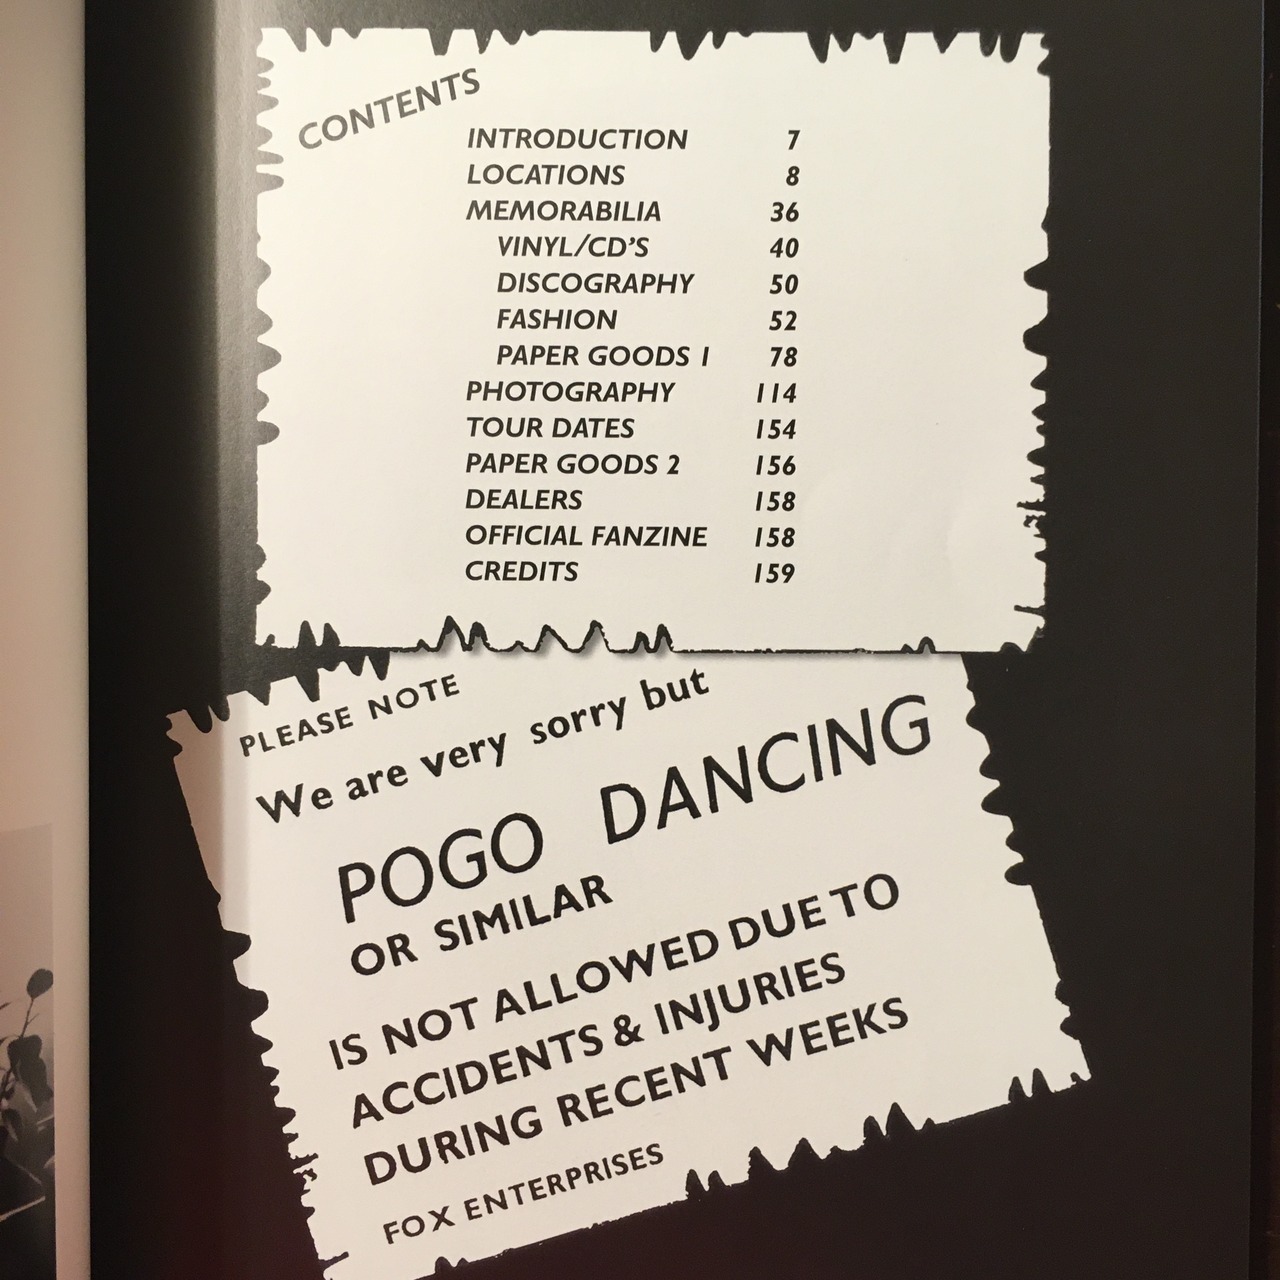 CONTENTS
INTRODUCTION 7
LOCATIONS 8
MEMORABILIA 36
VINYL/CD'S 40
DISCOGRAPHY 50
FASHION 52
PAPER GOODS 1 78
PHOTOGRAPHY 114
TOUR DATES 154
PAPER GOODS 2 156
DEALERS 158
OFFICIAL FANZINE 158
CREDITS 159
PLEASE NOTE
We are very sorry but
POGO DANCING
OR SIMILAR
IS NOT ALLOWED DUE TO
ACCIDENTS & INJURIES
DURING RECENT WEEKS
FOX ENTERPRISES